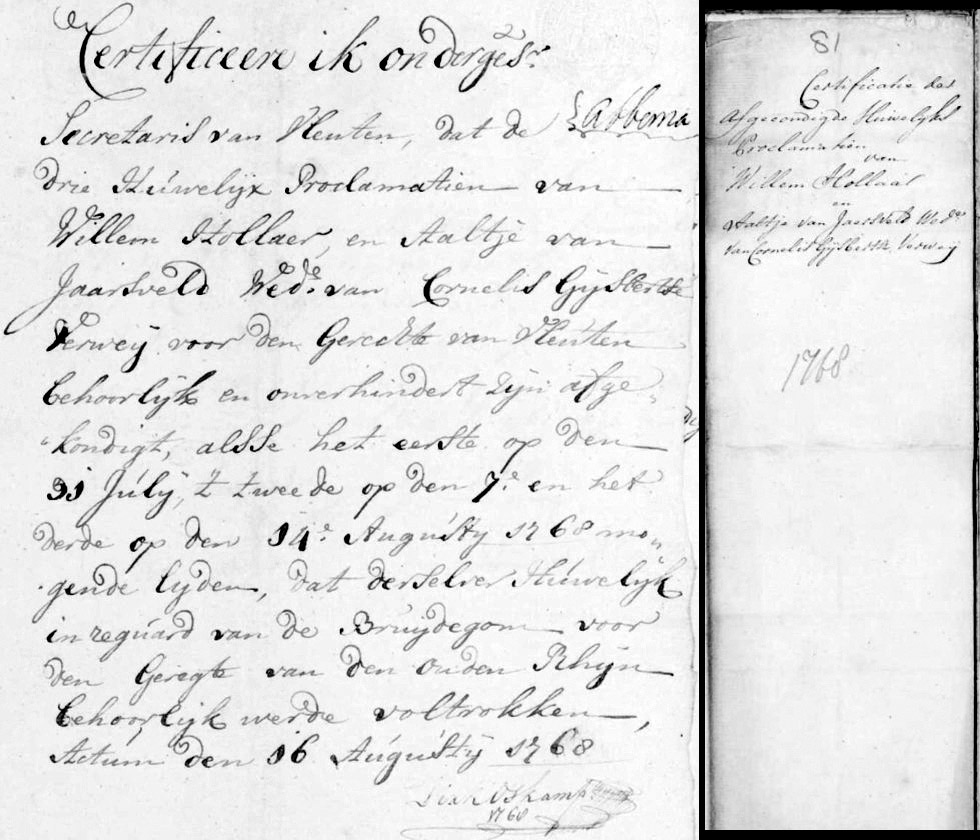 Certificeere ik onderges:
Secretaris van Vleuten, dat de
drie Húwelijx Proclamatien van
Willem Hollaer, en Aaltje van
Jaarsveld Wed.e van Cornelis Gijsbertse
Verweij voor den Gerechte van Vleúten
behoorlijk en onverhindert zijn afge
kondigt, alsse het eerste op den
31 Júlij, 't tweede op den 7.e en het
derde op den 14.e Augústij 1768 mo
gende lijden, dat derselver Húwelijk
in regúard van de Bruijdegom voor
den Geregte van den ouden Rhijn
behoorlijk werde voltrokken,
Actúm den 16 Augústij 1768
Dirk Oskamp
1768
81
Certificatie der
afgecondigde Húwelijks
Proclamatien
van
Willem Hollaar
en
Aaltje van Jaarsveld Wed.e
van Cornelis Gijsbertse Verweij
1768